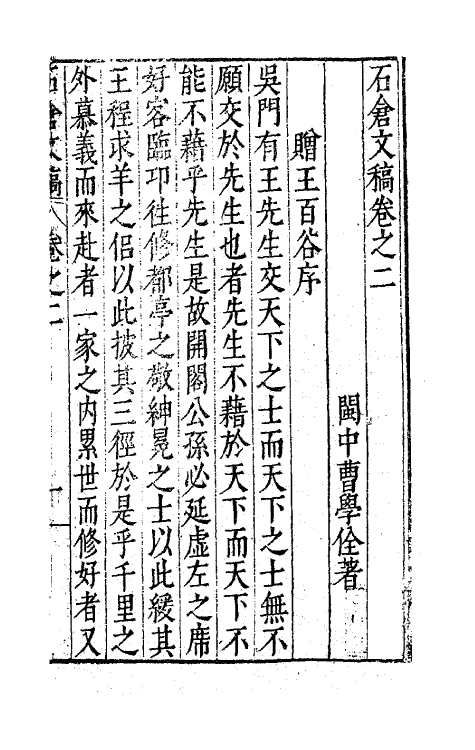 石倉文稿卷之二
閩中曹學佺著
贈王百谷序
吳門有王先生交天下之士而天下之士無不
願交於先生也者先生不藉於天下而天下不
能不藉乎先生是故開閣公孫必延虛左之席
好客臨卭徃修都亭之敬紳冕之士以此緩其
王程求羊之侶以此披其三徑於是乎千里之
外慕義而來赴者一家之内累世而修好者又
石倉文稿 卷之二 一